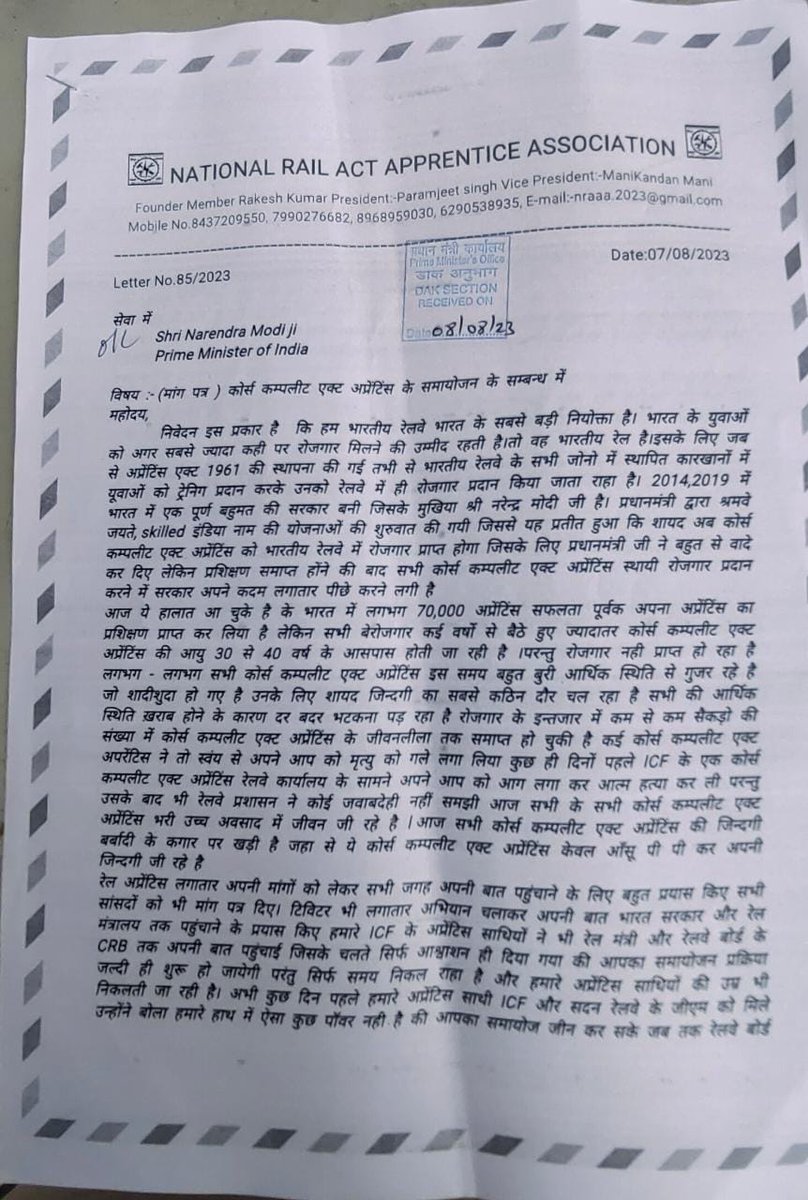 NATIONAL RAIL ACT APPRENTICE ASSOCIATION
Founder Member Rakesh Kumar President:-Paramjeet singh Vice President:-ManiKandan Mani
Mobjle No.8437209550, 7990276682, 8968959030, 6290538935, E-mail:-nraaa.2023@gmail.com
प्रधान मंत्री कार्यालय
Prime Minister's Office
डाक अनुभाग
DAK SECTION
RECEIVED ON
Date 08/08/23
Date:07/08/2023
Letter No.85/2023
सेवा में
Shri Narendra Modi ji
Prime Minister of India
विषय :- (मांग पत्र ) कोर्स कम्पलीट एक्ट अप्रेंटिस के समायोजन के सम्बन्ध में
महोदय,
निवेदन इस प्रकार है कि हम भारतीय रेलवे भारत के सबसे बड़ी नियोक्ता है। भारत के युवाओं
को अगर सबसे ज्यादा कही पर रोजगार मिलने की उम्मीद रहती है।तो वह भारतीय रेल है।इसके लिए जब
से अप्रेंटिस एक्ट 1961 की स्थापना की गई तभी से भारतीय रेलवे के सभी जोनो में स्थापित कारखानों में
युवाओं को ट्रेनिग प्रदान करके उनको रेलवे में ही रोजगार प्रदान किया जाता राहा है। 2014,2019 में
भारत में एक पूर्ण बहुमत की सरकार बनी जिसके मुखिया श्री नरेन्द्र मोदी जी है। प्रधानमंत्री द्वारा श्रमवे
जयते, skilled इंडिया नाम की योजनाओं की शुरुवात की गयी जिससे यह प्रतीत हुआ कि शायद अब कोर्स
कम्पलीट एक्ट अप्रेंटिस को भारतीय रेलवे में रोजगार प्राप्त होगा जिसके लिए प्रधानमंत्री जी ने बहुत से वादे
कर दिए लेकिन प्रशिक्षण समाप्त होंने की बाद सभी कोर्स कम्पलीट एक्ट अप्रेंटिस स्थायी रोजगार प्रदान
करने में सरकार अपने कदम लगातार पीछे करने लगी है
आज ये हालात आ चुके है के भारत में लगभग 70,000 अप्रेंटिस सफलता पूर्वक अपना अप्रेंटिस का
प्रशिक्षण प्राप्त कर लिया है लेकिन सभी बेरोजगार कई वर्षो से बैठे हुए ज्यादातर कोर्स कम्पलीट एक्ट
अप्रेंटिस की आयु 30 से 40 वर्ष के आसपास होती जा रही है ।परन्तु रोजगार नही प्राप्त हो रहा है
लगभग - लगभग सभी कोर्स कम्पलीट एक्ट अप्रेंटिस इस समय बहुत बुरी आर्थिक स्थिति से गुजर रहे है
जो शादीशुदा हो गए है उनके लिए शायद जिन्दगी का सबसे कठिन दौर चल रहा है सभी की आर्थिक
स्थिति ख़राब होने के कारण दर बदर भटकना पड़ रहा है रोजगार के इन्तजार में कम से कम सैकड़ो की
संख्या में कोर्स कम्पलीट एक्ट अप्रेंटिस के जीवनलीला तक समाप्त हो चुकी है कई कोर्स कम्पलीट एक्ट
अपरेंटिस ने तो स्वंय से अपने आप को मृत्यु को गले लगा लिया कुछ ही दिनों पहले ICF के एक कोर्स
कम्पलीट एक्ट अप्रेंटिस रेलवे कार्यालय के सामने अपने आप को आग लगा कर आत्म हत्या कर ली परन्तु
उसके बाद भी रेलवे प्रशासन ने कोई जवाबदेही नहीं समझी आज सभी के सभी कोर्स कम्पलीट एक्ट
अप्रेंटिस भरी उच्च अवसाद में जीवन जी रहे है । आज सभी कोर्स कम्पलीट एक्ट अप्रेंटिस की जिन्दगी
बर्बादी के कगार पर खड़ी है जहा से ये कोर्स कम्पलीट एक्ट अप्रेंटिस केवल आँसू पी पी कर अपनी
जिन्दगी जी रहे है
रेल अप्रेंटिस लगातार अपनी मांगों को लेकर सभी जगह अपनी बात पहुंचाने के लिए बहुत प्रयास किए सभी
सांसदों को भी मांग पत्र दिए। टिविटर भी लगातार अभियान चलाकर अपनी बात भारत सरकार और रेल
मंत्रालय तक पहुंचाने के प्रयास किए हमारे ICF के अप्रेंटिस साथियों ने भी रेल मंत्री और रेलवे बोर्ड के
CRB तक अपनी बात पहुंचाई जिसके चलते सिर्फ आश्वाशन ही दिया गया की आपका समायोजन प्रक्रिया
जल्दी ही शुरू हो जायेगी परंतु सिर्फ समय निकल राहा है और हमारे अप्रेंटिस साथियों की उम्र भी
निकलती जा रही है। अभी कुछ दिन पहले हमारे अप्रेंटिस साथी ICF और सदन रेलवे के जीएम को मिले
उन्होंने बोला हमारे हाथ में ऐसा कुछ पॉवर नही है की आपका समायोज जीन कर सके जब तक रेलवे बोर्ड